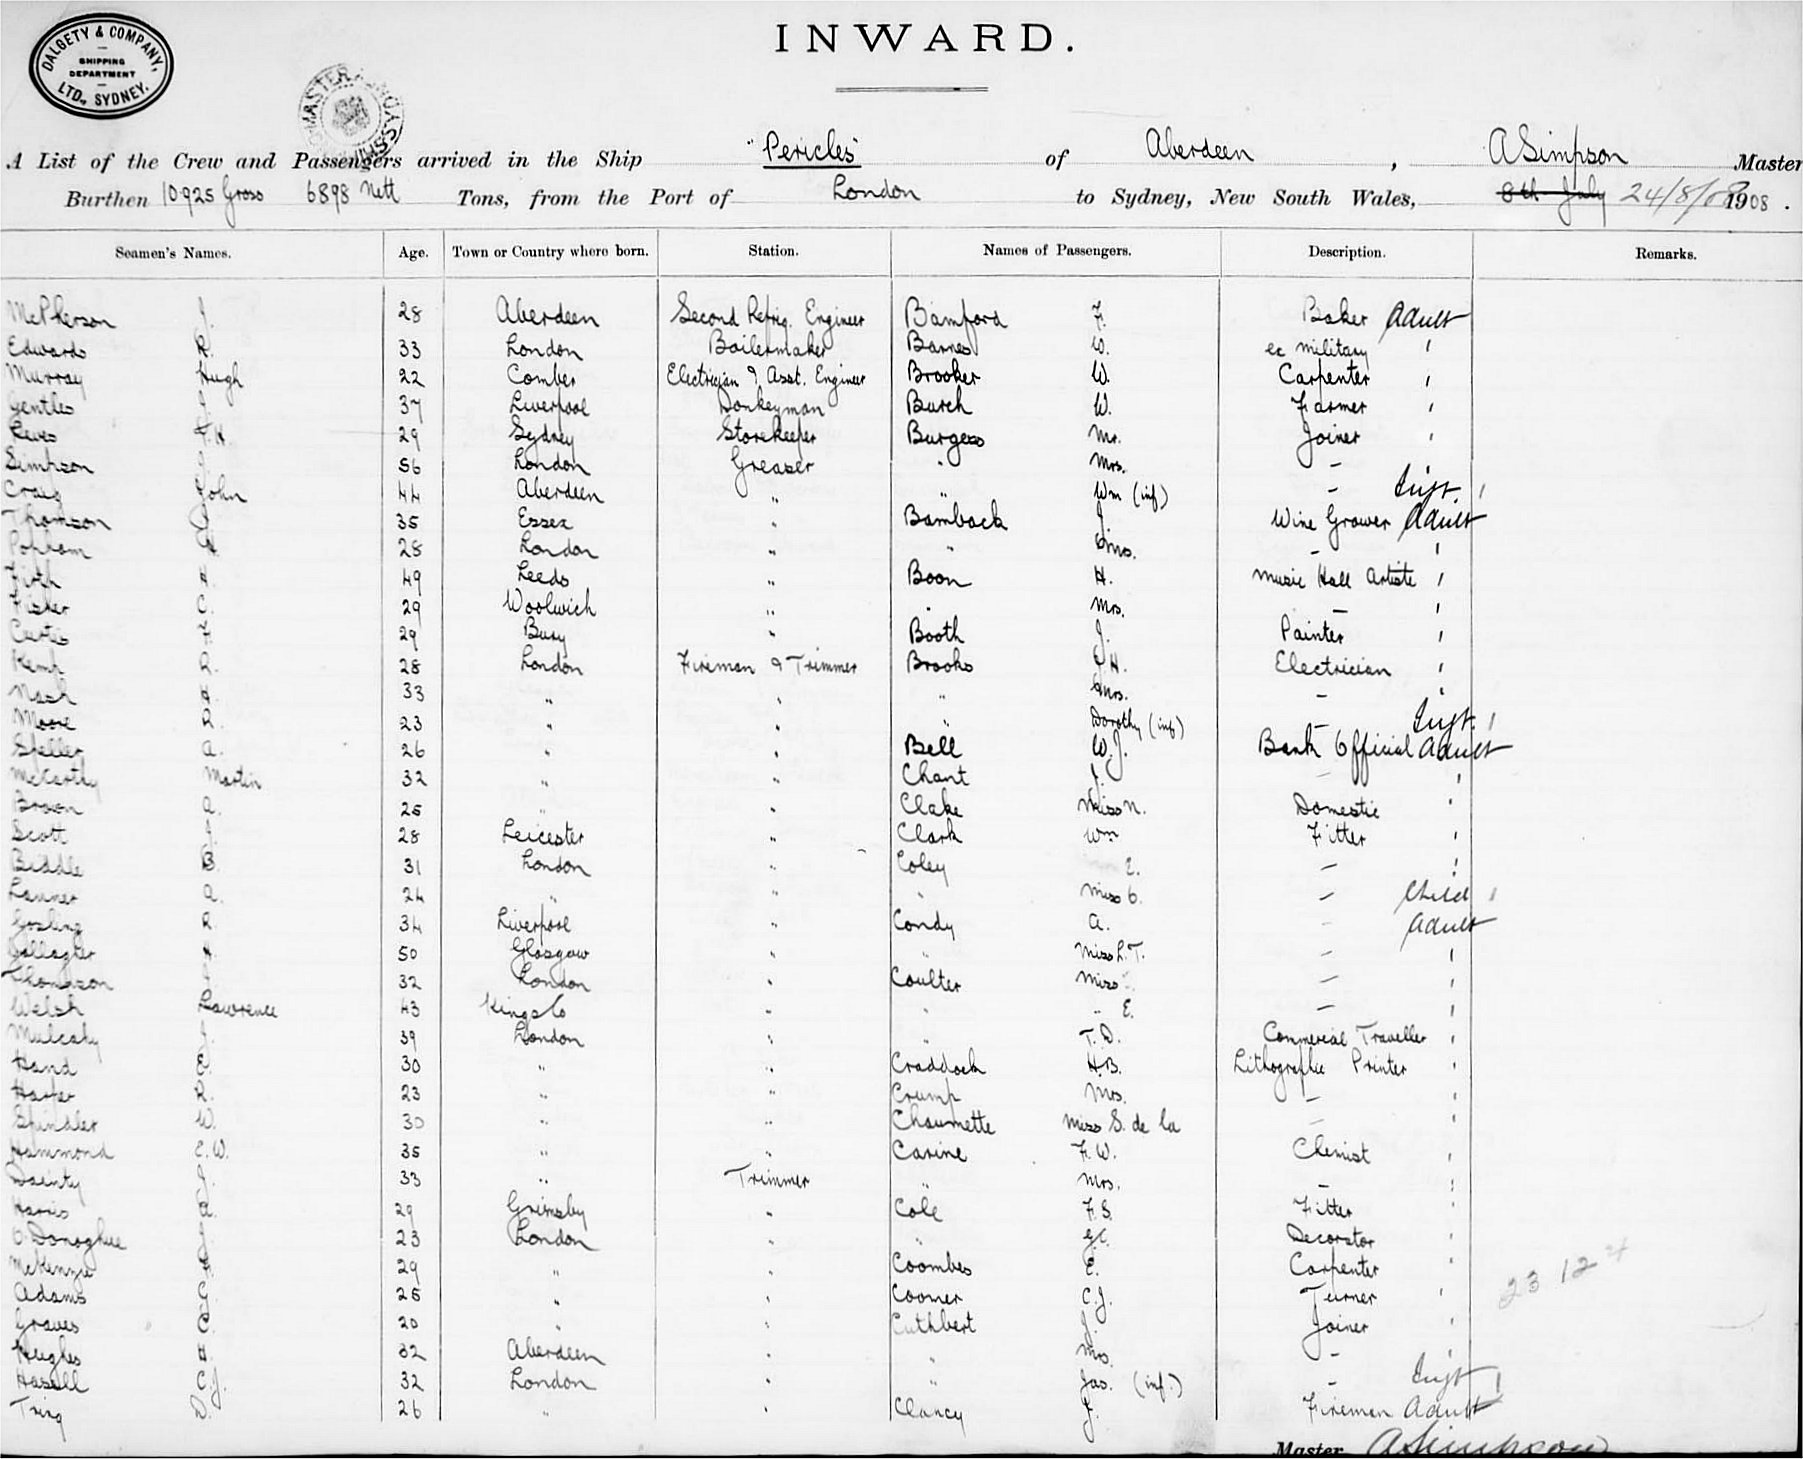 DALGETY & COMPANY,
SHIPPING
DEPARTMENT
LTD., SYDNEY.
INWARD.
A List of the Crew and Passengers arrived in the Ship "Pericles" of Aberdeen, A Simpson Master
Burthen 10925 Gross 6898 Nett Tons, from the Port of London to Sydney, New South Wales, 8th July 24/8/08 1908.
Seamen's Names. Age. Town or Country where born. Station. Names of Passengers. Description. Remarks.
McPherson J. 28 Aberdeen Second Refrig. Engineer Bamford F. Baker Adult
Edwards R. 33 London Boilermaker Barnes W. ex military "
Murray Hugh 22 Comber Electrician & Asst. Engineer Brooker W. Carpenter "
Gentles J. 37 Liverpool Donkeyman Burch W. Farmer "
Reves F.H. 29 Sydney Storekeeper Burgess Mr. Joiner "
Simpson J. 56 London Greaser " Mrs. –
Craig John 44 Aberdeen " " Wm (inf) – Inft. "
Thomson J. 35 Essex " Bamback J. Wine Grower Adult
Popham 28 London " " Mrs. – "
Firth H. 49 Leeds " Boon H. Music Hall Artiste "
Fisher C. 29 Woolwich " " Mrs. – "
Curtis 29 Bury " Booth J. Painter "
Kemp R. 28 London Fireman & Trimmer Brooks J.H. Electrician "
Nash H. 33 " " " Mrs. – "
Moore R. 23 " " " Dorothy (inf) – Inft. "
Speller A. 26 " " Bell W.J. Bank Official Adult
McCarthy Martin 32 " " Chant J. – "
Broon A. 25 " " Clake Miss N. Domestic "
Scott J. 28 Leicester " Clark Wm Fitter "
Biddle B. 31 London " Coley E. – "
Lanner A. 24 " " " Miss O. – Child "
Gosling R. 34 Liverpool " Condy A. – Adult
Gallagher 50 Glasgow " " Miss L.T. – "
Thomson J. 32 London " Coulter Miss – "
Welsh Lawrence 43 Kings Co " " " E. – "
Mulcahy J. 39 London " " T.D. Commercial Traveller "
Hand E. 30 " " Craddock H.B. Lithographic Printer "
Harper R. 23 " " Crump Mrs. – "
Spindler W. 30 " " Chaumette Miss S. de la – "
Hammond C.W. 35 " " Carine F.W. Chemist "
Dainty J. 33 " Trimmer " Mrs. – "
Harris 29 Grimsby " Cole F.S. Fitter "
O'Donoghue J. 23 London " " G.C. Decorator "
McKenzie 29 " " Coombes E. Carpenter "
Adams C. 25 " " Coomer C.J. Turner "
Graves C. 20 " " Cuthbert J. Joiner "
Hughes H. 32 Aberdeen " " Mrs. – "
Hasell C.J. 32 London " " Jas. (inf.) – Inft "
Tring D. 26 " " Clancy J. Fireman Adult
23 12
Master A Simpson